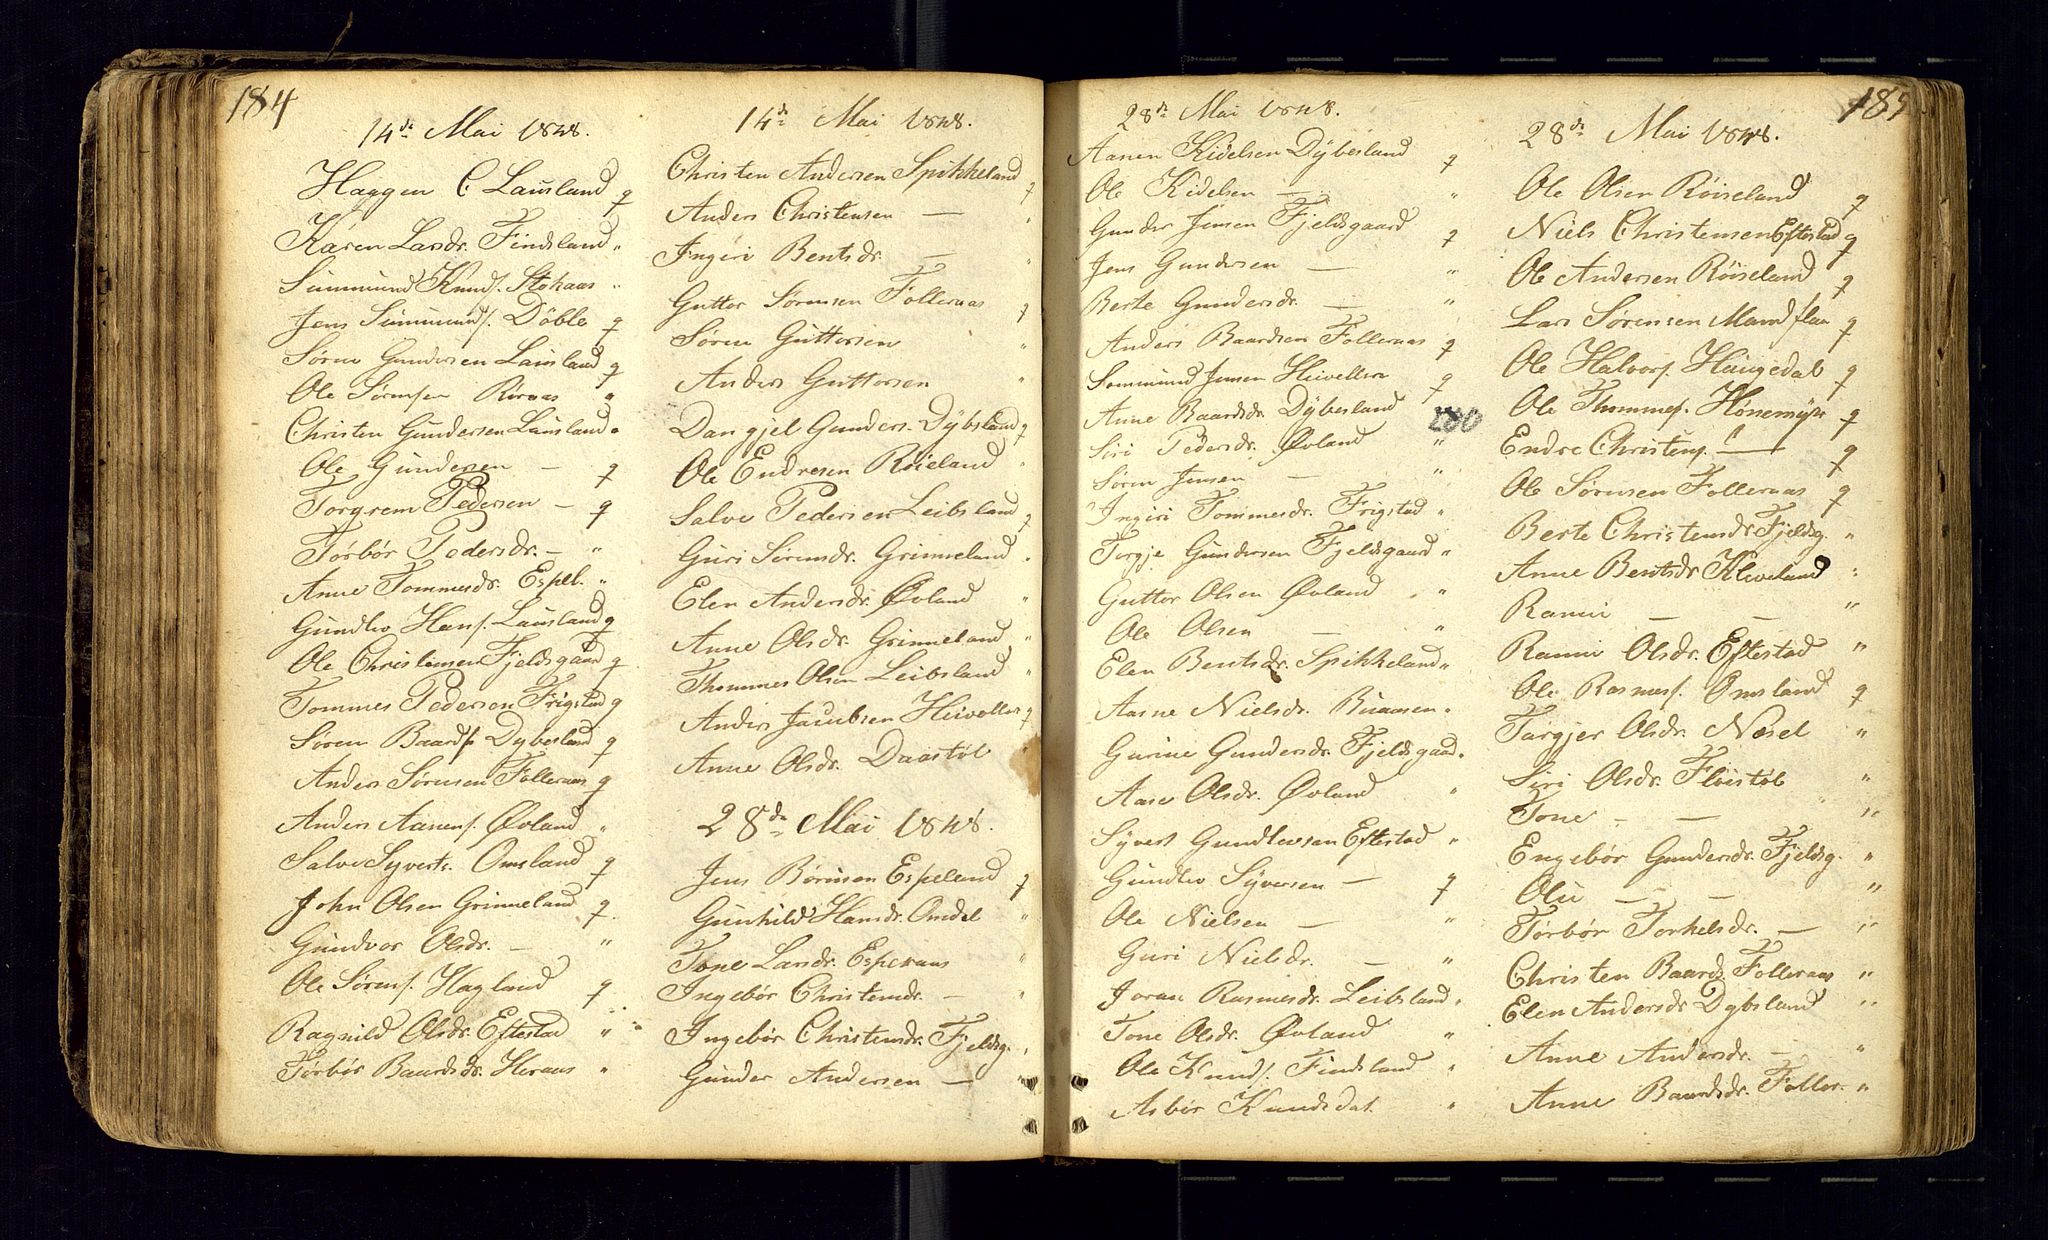 184
14de Mai 1848.
Haagen C. Lausland q
Karen Larsdr. Findsland "
Summund Knuds. Stokaas "
Jens Summunds. Döble q
Søren Gundersen Lausland q
Ole Sørensen Røiraas "
Christen Gundersen Lausland "
Ole Gundersen — q
Torgrem Pedersen — q
Torbør Pedersdr. — "
Anne Tommesdr. Espel. "
Gundlev Hans. Lausland q
Ole Christensen Fjeldsgaard q
Tommes Pedersen Frigstad q
Søren Baards. Dybesland q
Anders Sørensen Folleraas q
Anders Aanens. Øvland "
Salve Syverts. Omsland q
John Olsen Grinneland q.
Gundvor Olsdr. — "
Ole Sørens. Hagland q
Ragnild Olsdr. Eftestad "
Torbør Baardsdr. Heraas "
14de Mai 1848.
Christen Andersen Spikkeland q
Anders Christensen — "
Ingeri Bentsdr. — "
Guttor Sørensen Folleraas q
Søren Guttorsen "
Anders Guttorsen "
Dangjel Gunders. Dybsland q
Ole Endresen Røieland "
Salve Pedersen Leibsland q
Guri Sørensdr. Grinneland "
Elen Andersdr. Øvland "
Anne Olsdr. Grinneland "
Thommes Olsen Leibsland "
Anders Jacobsen Heivollen q
Anne Olsdr. Daastöl "
28de Mai 1848.
Jens Börrisen Espeland q
Gunhild Hansdr. Omdal "
Tone Larsdr. Esperaas "
Ingebör Christensdr. — "
Ingebör Christensdr. Fjeldsg. "
Gunder Andersen — "
28de Mai 1848.
Aanen Kidelsen Dybesland q
Ole Kidelsen — "
Gunder Jensen Fjeldsgaard q
Jens Gundersen — "
Berte Gundersdr. — "
Anders Baardsen Folleraas q
Sommund Jensen Heivollen q
Anne Baardsdr. Dybesland "
200
Siri Pedersdr. Øvland "
Søren Jensen — "
Ingeri Tommesdr. Frigstad "
Torgje Gundersen Fjeldsgaard "
Guttor Olsen Øvland "
Ole Olsen — "
Elen Bentsdr. Spikkeland "
Aasne Nielsdr. Buaasen "
Gurine Gundersdr. Fjeldsgaard "
Aase Olsdr. Øvland "
Syvert Gundlevsen Eftestad "
Gundlev Syversen — q
Ole Nielsen — "
Guri Nielsdr. — "
Joran Rasmesdr. Leibsland "
Tone Olsdr. Øvland "
Ole Knuds. Findsland "
Asbör Knudsdat. "
185
28de Mai 1848.
Ole Olsen Röiseland q
Niels Christensen Eftestad q
Ole Andersen Röiseland q
Lars Sørensen Mandflaa q
Ole Halvors. Haugedal q
Ole Thommes. Honemyr q
Endre Christens. — q
Ole Sørensen Folleraas q
Berte Christensdr. Fjeldsg. "
Anne Bentsdr. Kleveland "
Rannei — — "
Rannei Olsdr. Eftestad "
Ole Rasmus. Omsland q
Targjer Olsdr. Næsel "
Siri Olsdr. Flöistöl "
Tone — — "
Engebör Gundersdr. Fjeldsg. "
Olu — — "
Torbör Torkelsdr. — "
Christen Baards. Folleraas "
Elen Andersdr. Dybsland "
Anne Andersdr. — "
Anne Baardsdr. Foller. "